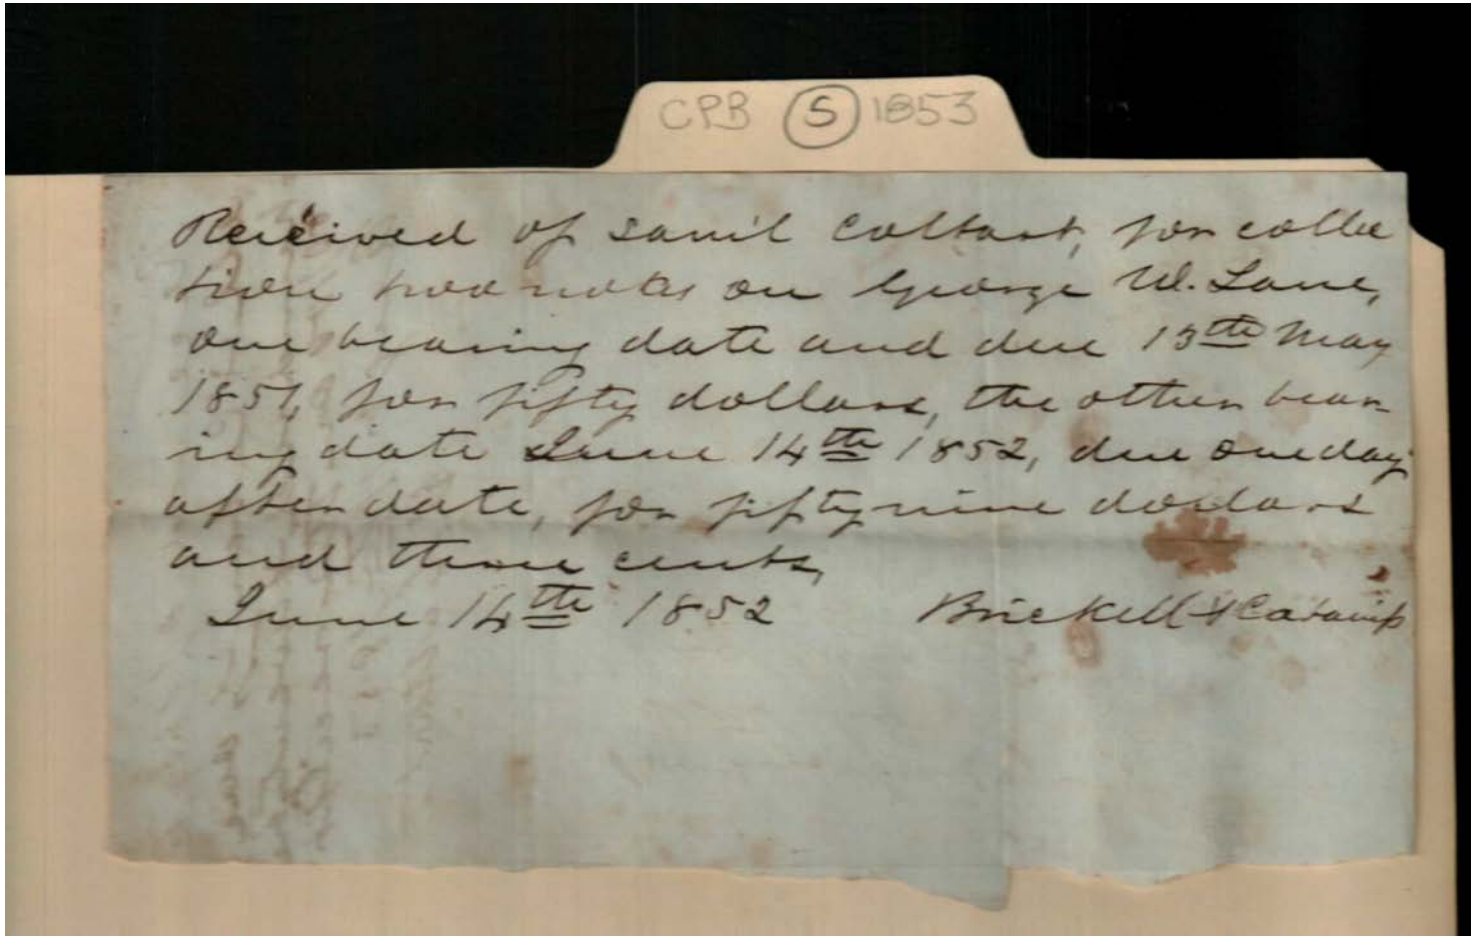 CPB S 1853
Received of Saml Coltart, for collec
tion two notes on George W. Lane,
one bearing date and due 13th May
1851, for fifty dollars, the other bear
ing date June 14th 1852, due one day
after date, for fifty nine dollars
and three cents,
June 14th 1852 Brickell &